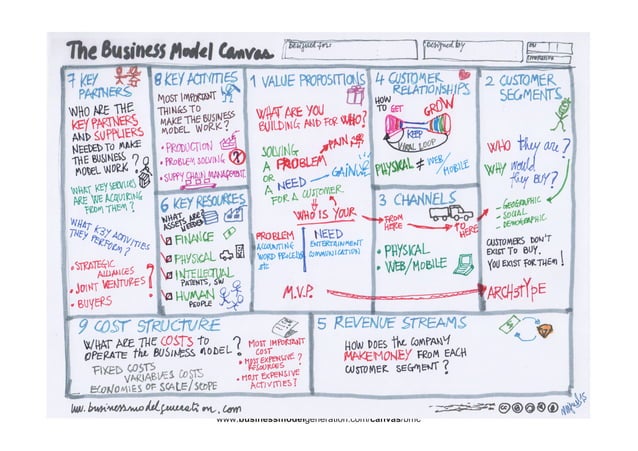 The Business Model Canvas
Designed for:
Designed by
7 KEY PARTNERS
WHO ARE THE
KEY PARTNERS
AND SUPPLIERS
NEEDED TO MAKE
THE BUSINESS
MODEL WORK?
WHAT KEY SERVICES
ARE WE ACQUIRING
FROM THEM?
WHAT KEY ACTIVITIES
THEY PERFORM?
• STRATEGIC
ALLIANCES
• JOINT VENTURES
• BUYERS
8 KEY ACTIVITIES
MOST IMPORTANT
THINGS TO
MAKE THE BUSINESS
MODEL WORK?
• PRODUCTION
• PROBLEM SOLVING ?
• SUPPLY CHAIN MANAGEMENT
6 KEY RESOURCES
WHAT
ASSETS ARE
NEEDED
FINANCE
PHYSICAL
INTELLECTUAL
PATENTS, SW
HUMAN
PEOPLE
1 VALUE PROPOSITIONS
WHAT ARE YOU
BUILDING AND FOR WHO?
SOLVING
A PROBLEM
OR
A NEED
PAIN
GAIN
FOR A CUSTOMER
WHO IS YOUR
PROBLEM
ACCOUNTING
WORD PROCESS
etc
NEED
ENTERTAINMENT
COMMUNICATION
M.V.P.
4 CUSTOMER
RELATIONSHIPS
HOW
TO GET
KEEP
GROW
VIRAL LOOP
PHYSICAL ≠ WEB/
MOBILE
3 CHANNELS
FROM
HERE
TO
HERE
• PHYSICAL
• WEB/MOBILE
2 CUSTOMER
SEGMENTS
WHO they are?
WHY would
they BUY?
- GEOGRAPHIC
- SOCIAL
- DEMOGRAPHIC
CUSTOMERS DON'T
EXIST TO BUY.
YOU EXIST FOR THEM!
ARCHETYPE
9 COST STRUCTURE
WHAT ARE THE COSTS TO
OPERATE THE BUSINESS MODEL?
FIXED COSTS
VARIABLE COSTS
ECONOMIES OF SCALE/SCOPE
MOST IMPORTANT
COST
• MOST EXPENSIVE
RESOURCES?
• MOST EXPENSIVE
ACTIVITIES!
5 REVENUE STREAMS
HOW DOES THE COMPANY
MAKE MONEY FROM EACH
CUSTOMER SEGMENT?
www.businessmodelgeneration.com
www.businessmodelgeneration.com/canvas/bmc